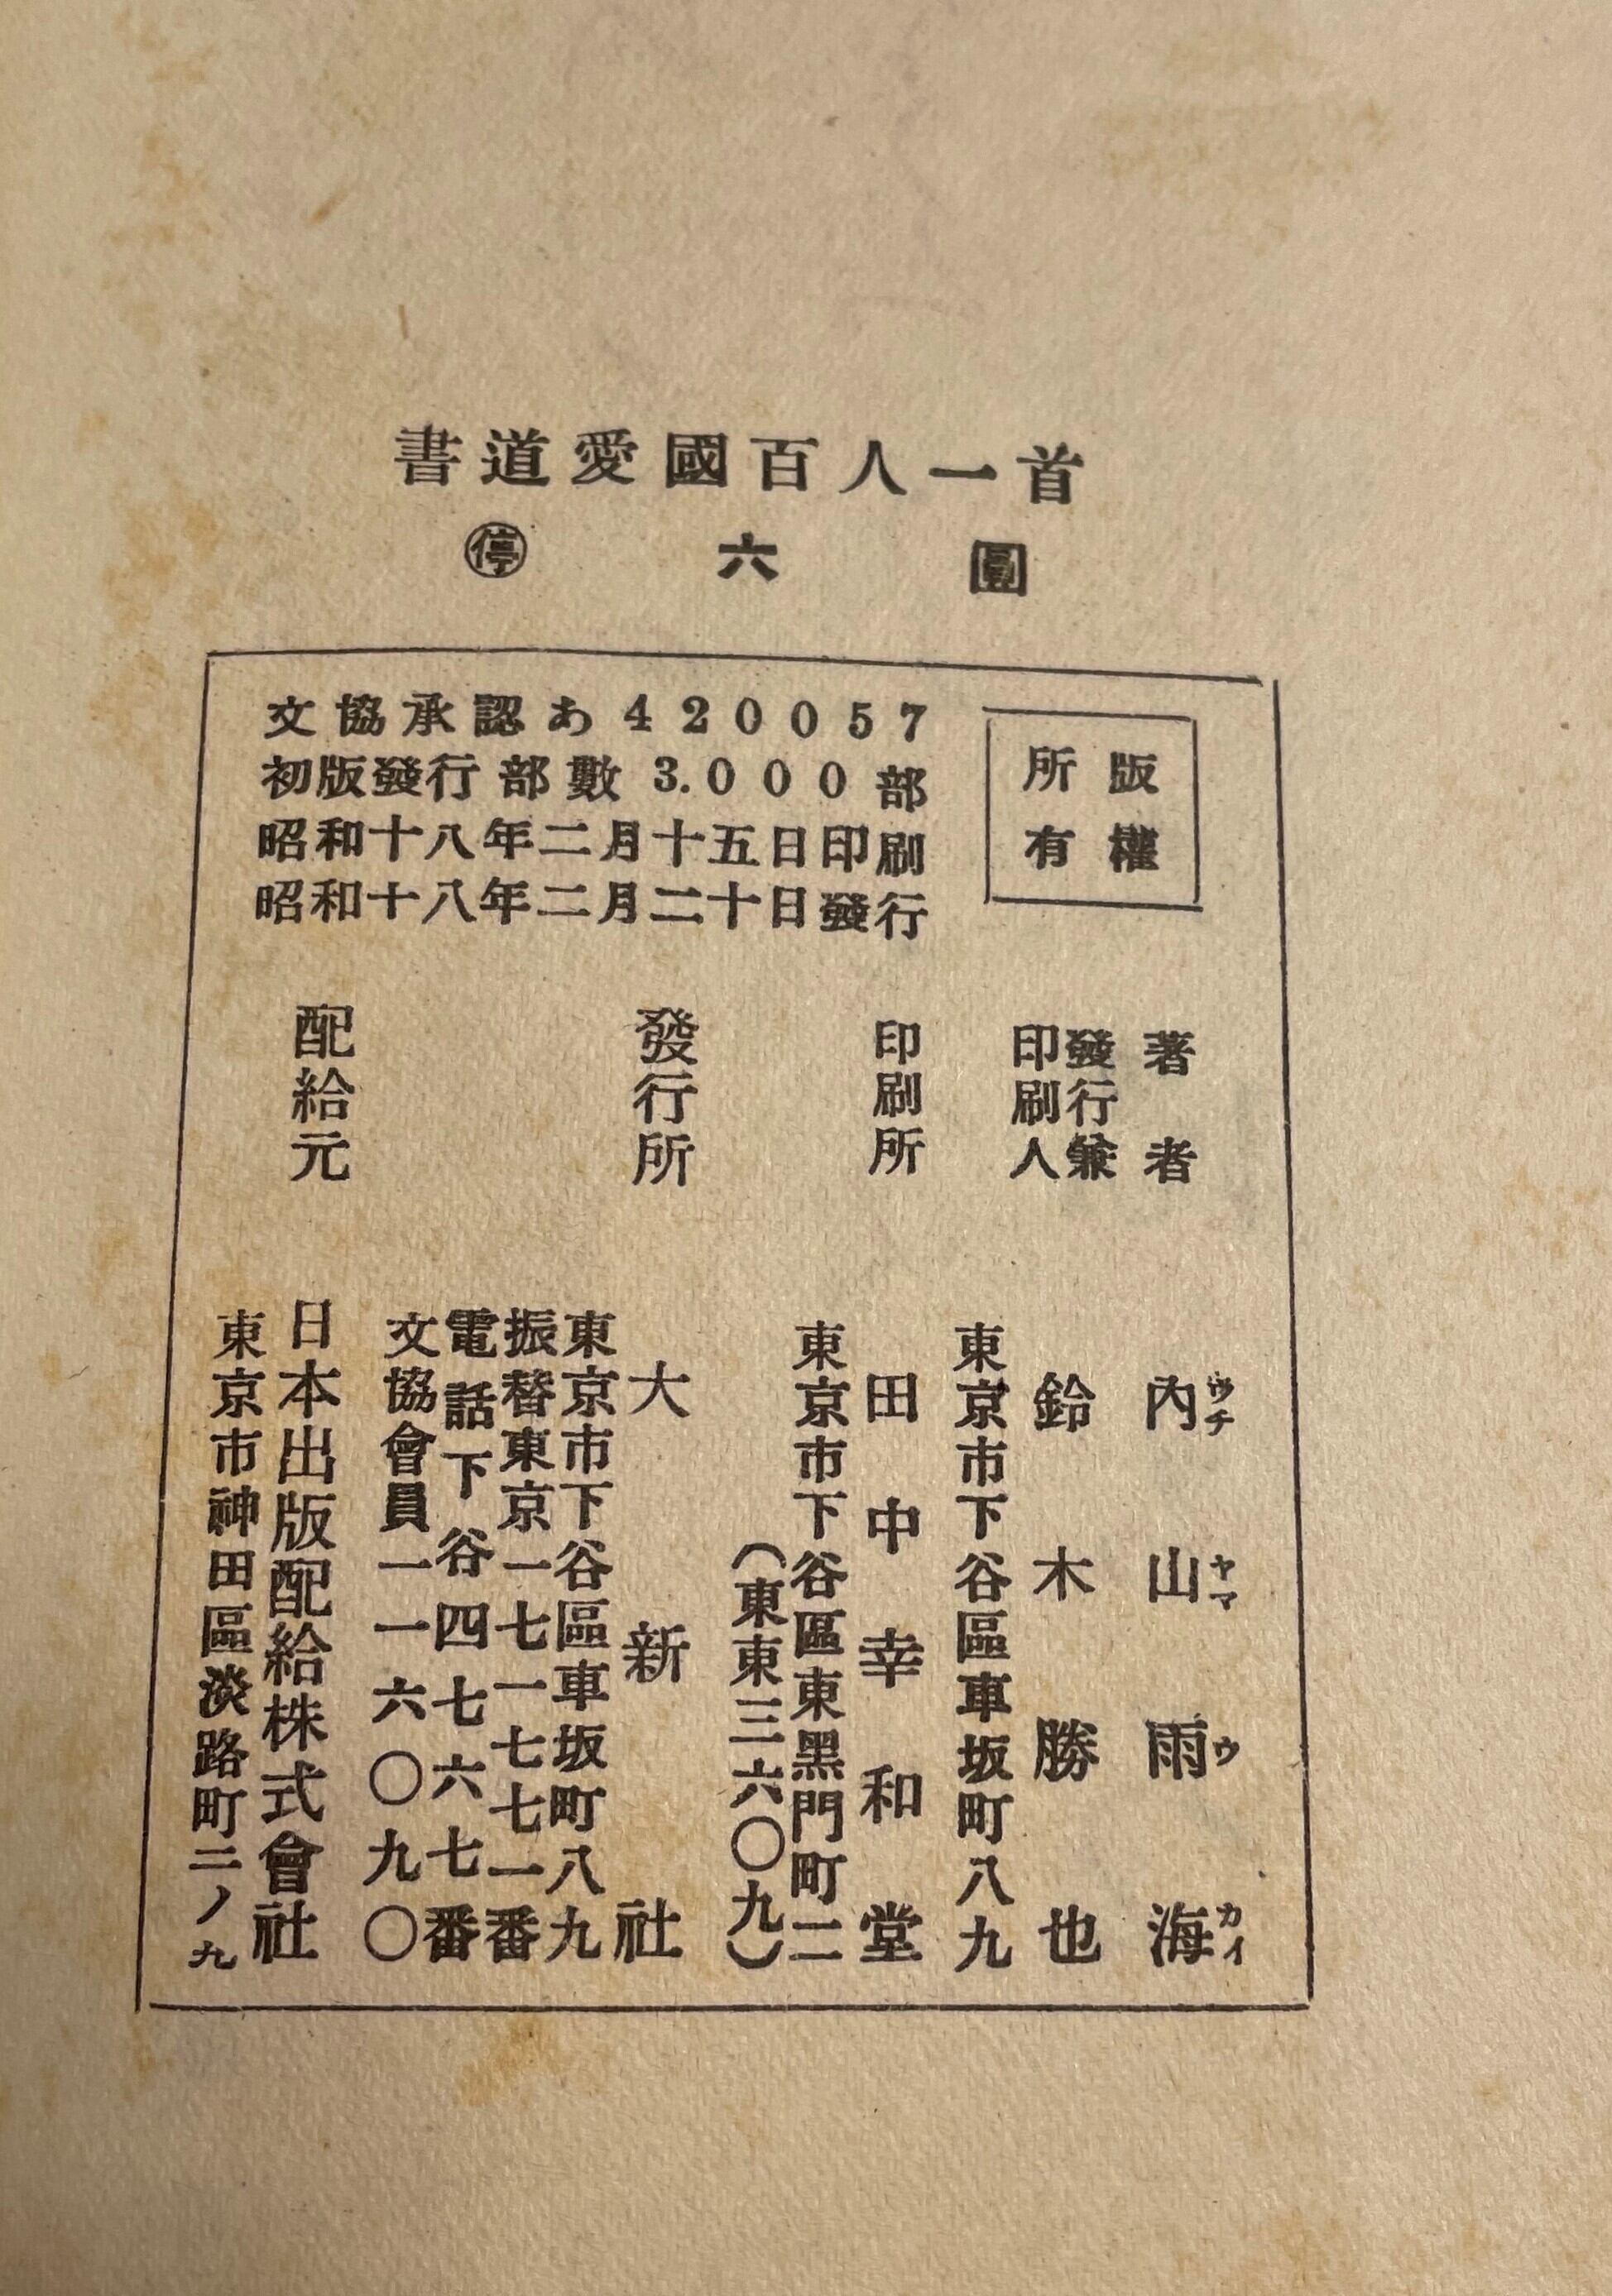 書道愛國百人一首
㊝ 六圓
文協承認あ420057
初版發行部數3.000部
昭和十八年二月十五日印刷
昭和十八年二月二十日發行
版權
所有
著者
內山雨海
ウチヤマウカイ
發行兼
印刷人
鈴木勝也
東京市下谷區車坂町八九
印刷所
田中幸和堂
東京市下谷區東黑門町二二
(東東三六〇九)
發行所
大新社
東京市下谷區車坂町八九
振替東京一七一七七一番
電話下谷四七六七番
文協會員一一六〇九〇
配給元
日本出版配給株式會社
東京市神田區淡路町二ノ九